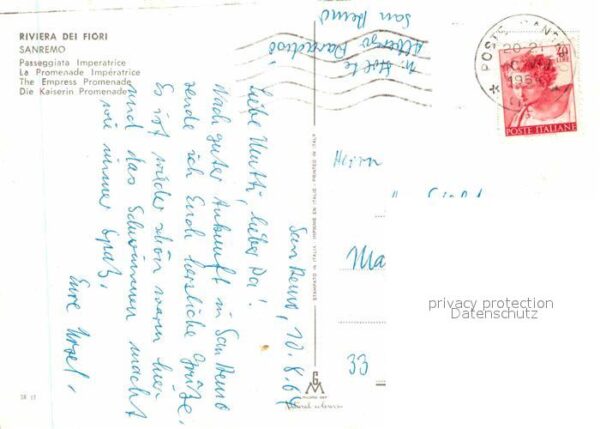 RIVIERA DEI FIORI
SANREMO
Passeggiata Imperatrice
La Promenade Impératrice
The Empress Promenade
Die Kaiserin Promenade
San Remo, 10.8.64
Liebe Mutti, lieber Pa!
Nach guter Ankunft in San Remo
sende ich Euch herzliche Grüße.
Es ist wieder schön warm hier
und das Schwimmen macht
wie immer Spaß.
Eure Ursel.
Albergo Paradiso
San Remo
POSTE ITALIANE
STAMPATO IN ITALIA - IMPRIMÉ EN ITALIE - PRINTED IN ITALY
Herrn
Ma
33
privacy protection
Datenschutz